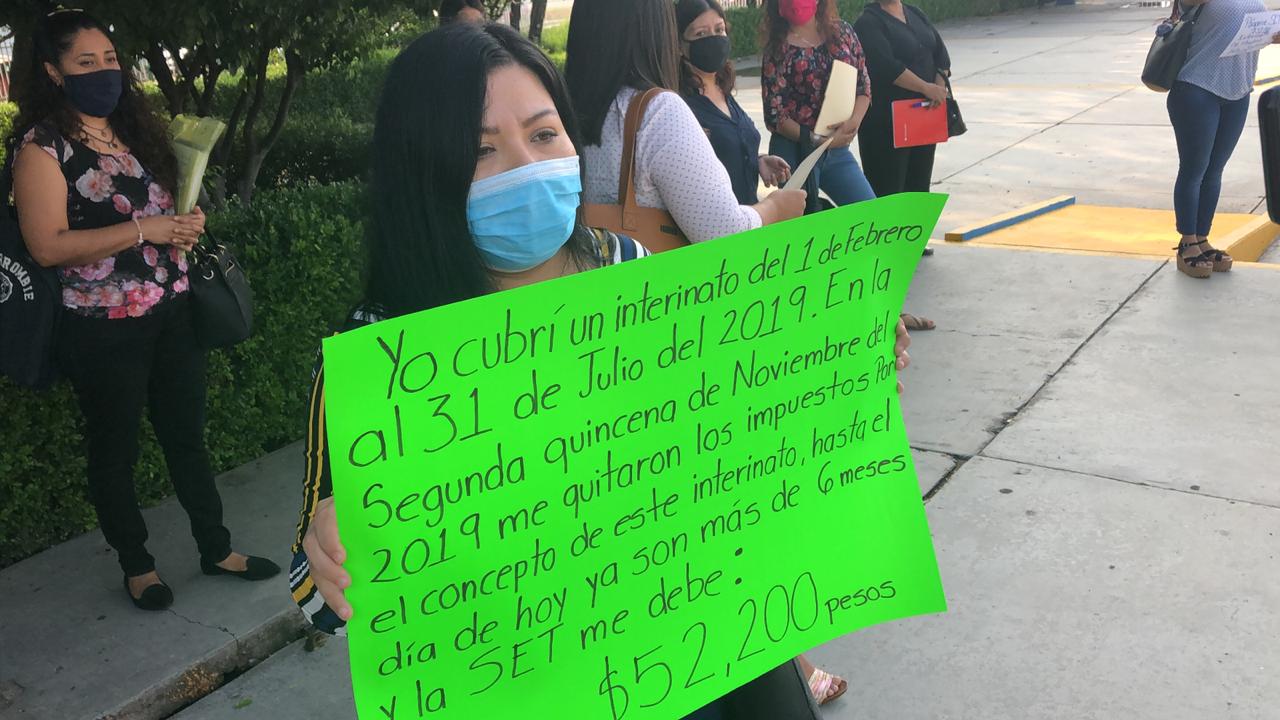 Yo cubrí un interinato del 1 de Febrero
al 31 de Julio del 2019. En la
Segunda quincena de Noviembre del
2019 me quitaron los impuestos Por
el concepto de este interinato, hasta el
día de hoy ya son más de 6 meses
y la SET me debe:
$52,200 pesos